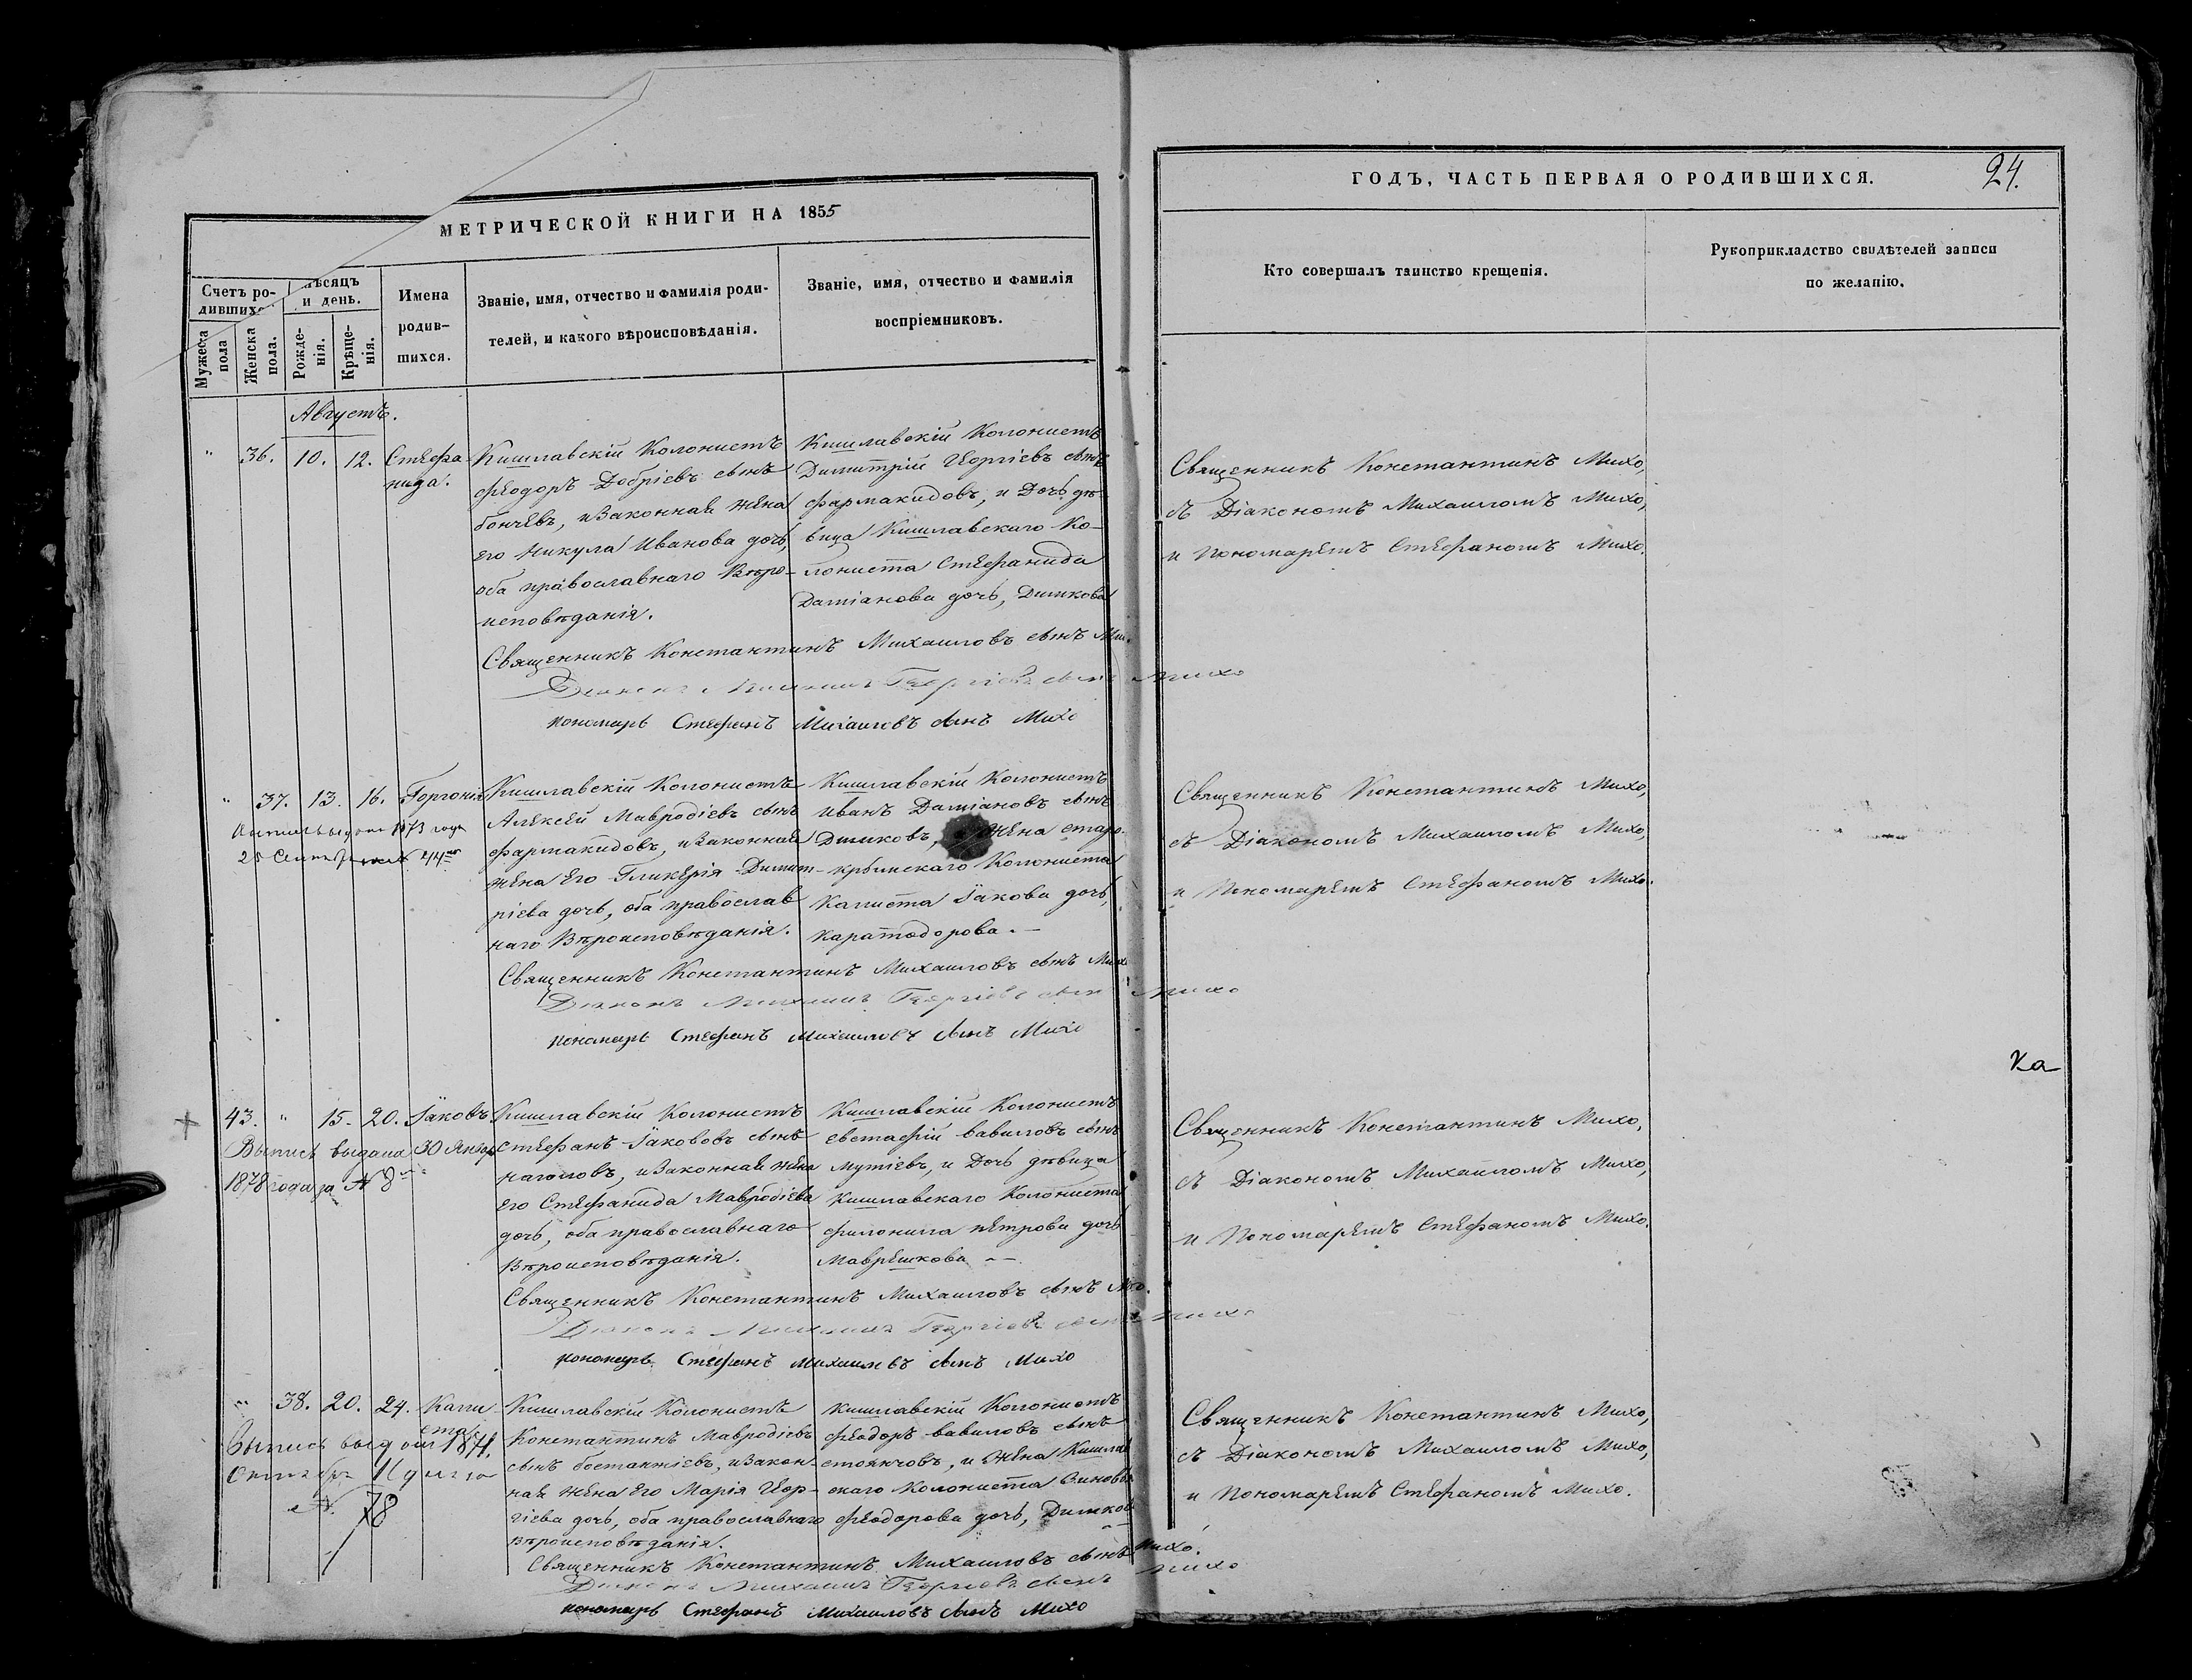 МЕТРИЧЕСКОЙ КНИГИ НА 1855
Счетъ ро-
дившихс
мѣсяцъ
и день.
Имена
родив-
шихся.
Званіе, имя, отчество и фамилія роди-
телей, и какого вѣроисповѣданія.
Званіе, имя, отчество и фамилія
воспріемниковъ.
Мужеска
пола
Женска
пола.
Рожде-
нія.
Крѣще-
нія.
Августъ.
" 36. 10. 12. Стефа-
нида.
Кишлавскій Колонистъ
Феодоръ Добріевъ сынъ
бончевъ, и законная жена
его Никула Иванова дочь,
оба православнаго Вѣро-
исповѣданія.
Кишлавскій Колонистъ
Димитрій Георгіевъ сынъ
Фармакидовъ, и Дочь дѣ-
вица Кишлавскаго Ко-
лониста Стефанида
Даміанова дочь, Димкова
Священникъ Константинъ Михаиловъ сынъ Михо.
Діаконъ Михаилъ Георгіевъ сынъ Михо
пономарь Стефанъ Михаиловъ сынъ Михо
" 37. 13. 16. Горгонія
выдана 1873 года
25 Сентября № 44
Кишлавскій Колонистъ
Алексѣй Мавродіевъ сынъ
Фармакидовъ, и законная
жена его Гликерія Димит-
ріева дочь, оба православ
наго Вѣроисповѣданія.
Кишлавскій Колонистъ
Иванъ Даміановъ сынъ
Димковъ, и жена старо-
крымскаго Колониста
Калиста Іакова дочь,
Каратодорова. —
Священникъ Константинъ Михаиловъ сынъ Михо
Діаконъ Михаилъ Георгіевъ сынъ Михо
пономарь Стефанъ Михаиловъ сынъ Михо
43. " 15. 20. Іаковъ
Выпись выдана 30 Января
1878 года за № 8
Кишлавскій Колонистъ
Стефанъ Іакововъ сынъ
наголовъ, и законная жена
его Стефанида Мавродіева
дочь, оба православнаго
Вѣроисповѣданія.
Кишлавскій Колонистъ
евстафій вавиловъ сынъ
Мутіевъ, и Дочь дѣвица
Кишлавскаго Колониста
филонила петрова дочь
Маврешкова —
Священникъ Константинъ Михаиловъ сынъ Михо.
Діаконъ Михаилъ Георгіевъ сынъ Михо
пономарь Стефанъ Михаиловъ сынъ Михо
" 38. 20. 24. Кали
ста.
Выпись выдана 1871.
Октября 16 дня за
№ 78
Кишлавскій Колонистъ
Константинъ Мавродіевъ
сынъ бостанжіевъ, и закон-
ная жена его Марія Геор-
гіева дочь, оба православнаго
Вѣроисповѣданія.
кишлавскій Колонистъ
Феодоръ вавиловъ сынъ
стоянчовъ, и жена Кишлав
скаго Колониста Зиновія
Феодорова дочь, Димков
Священникъ Константинъ Михаиловъ сынъ Михо.
Діаконъ Михаилъ Георгіевъ сынъ Михо
пономарь Стефанъ Михаиловъ сынъ Михо
ГОДЪ, ЧАСТЬ ПЕРВАЯ О РОДИВШИХСЯ.
24.
Кто совершалъ таинство крещенія.
Рукоприкладство свидѣтелей записи
по желанію.
Священникъ Константинъ Михо,
съ Діакономъ Михаиломъ Михо,
и Пономаремъ Стефаномъ Михо.
Священникъ Константинъ Михо,
съ Діакономъ Михаиломъ Михо,
и Пономаремъ Стефаномъ Михо.
Ка
Священникъ Константинъ Михо,
съ Діакономъ Михаиломъ Михо,
и Пономаремъ Стефаномъ Михо.
Священникъ Константинъ Михо,
съ Діакономъ Михаиломъ Михо,
и Пономаремъ Стефаномъ Михо.